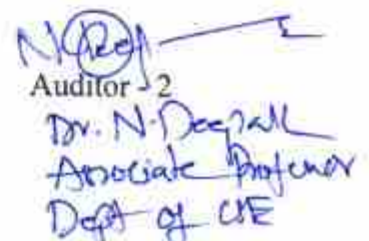 Auditor - 2
Dr. N. Deepak
Associate Professor
Dept of CSE